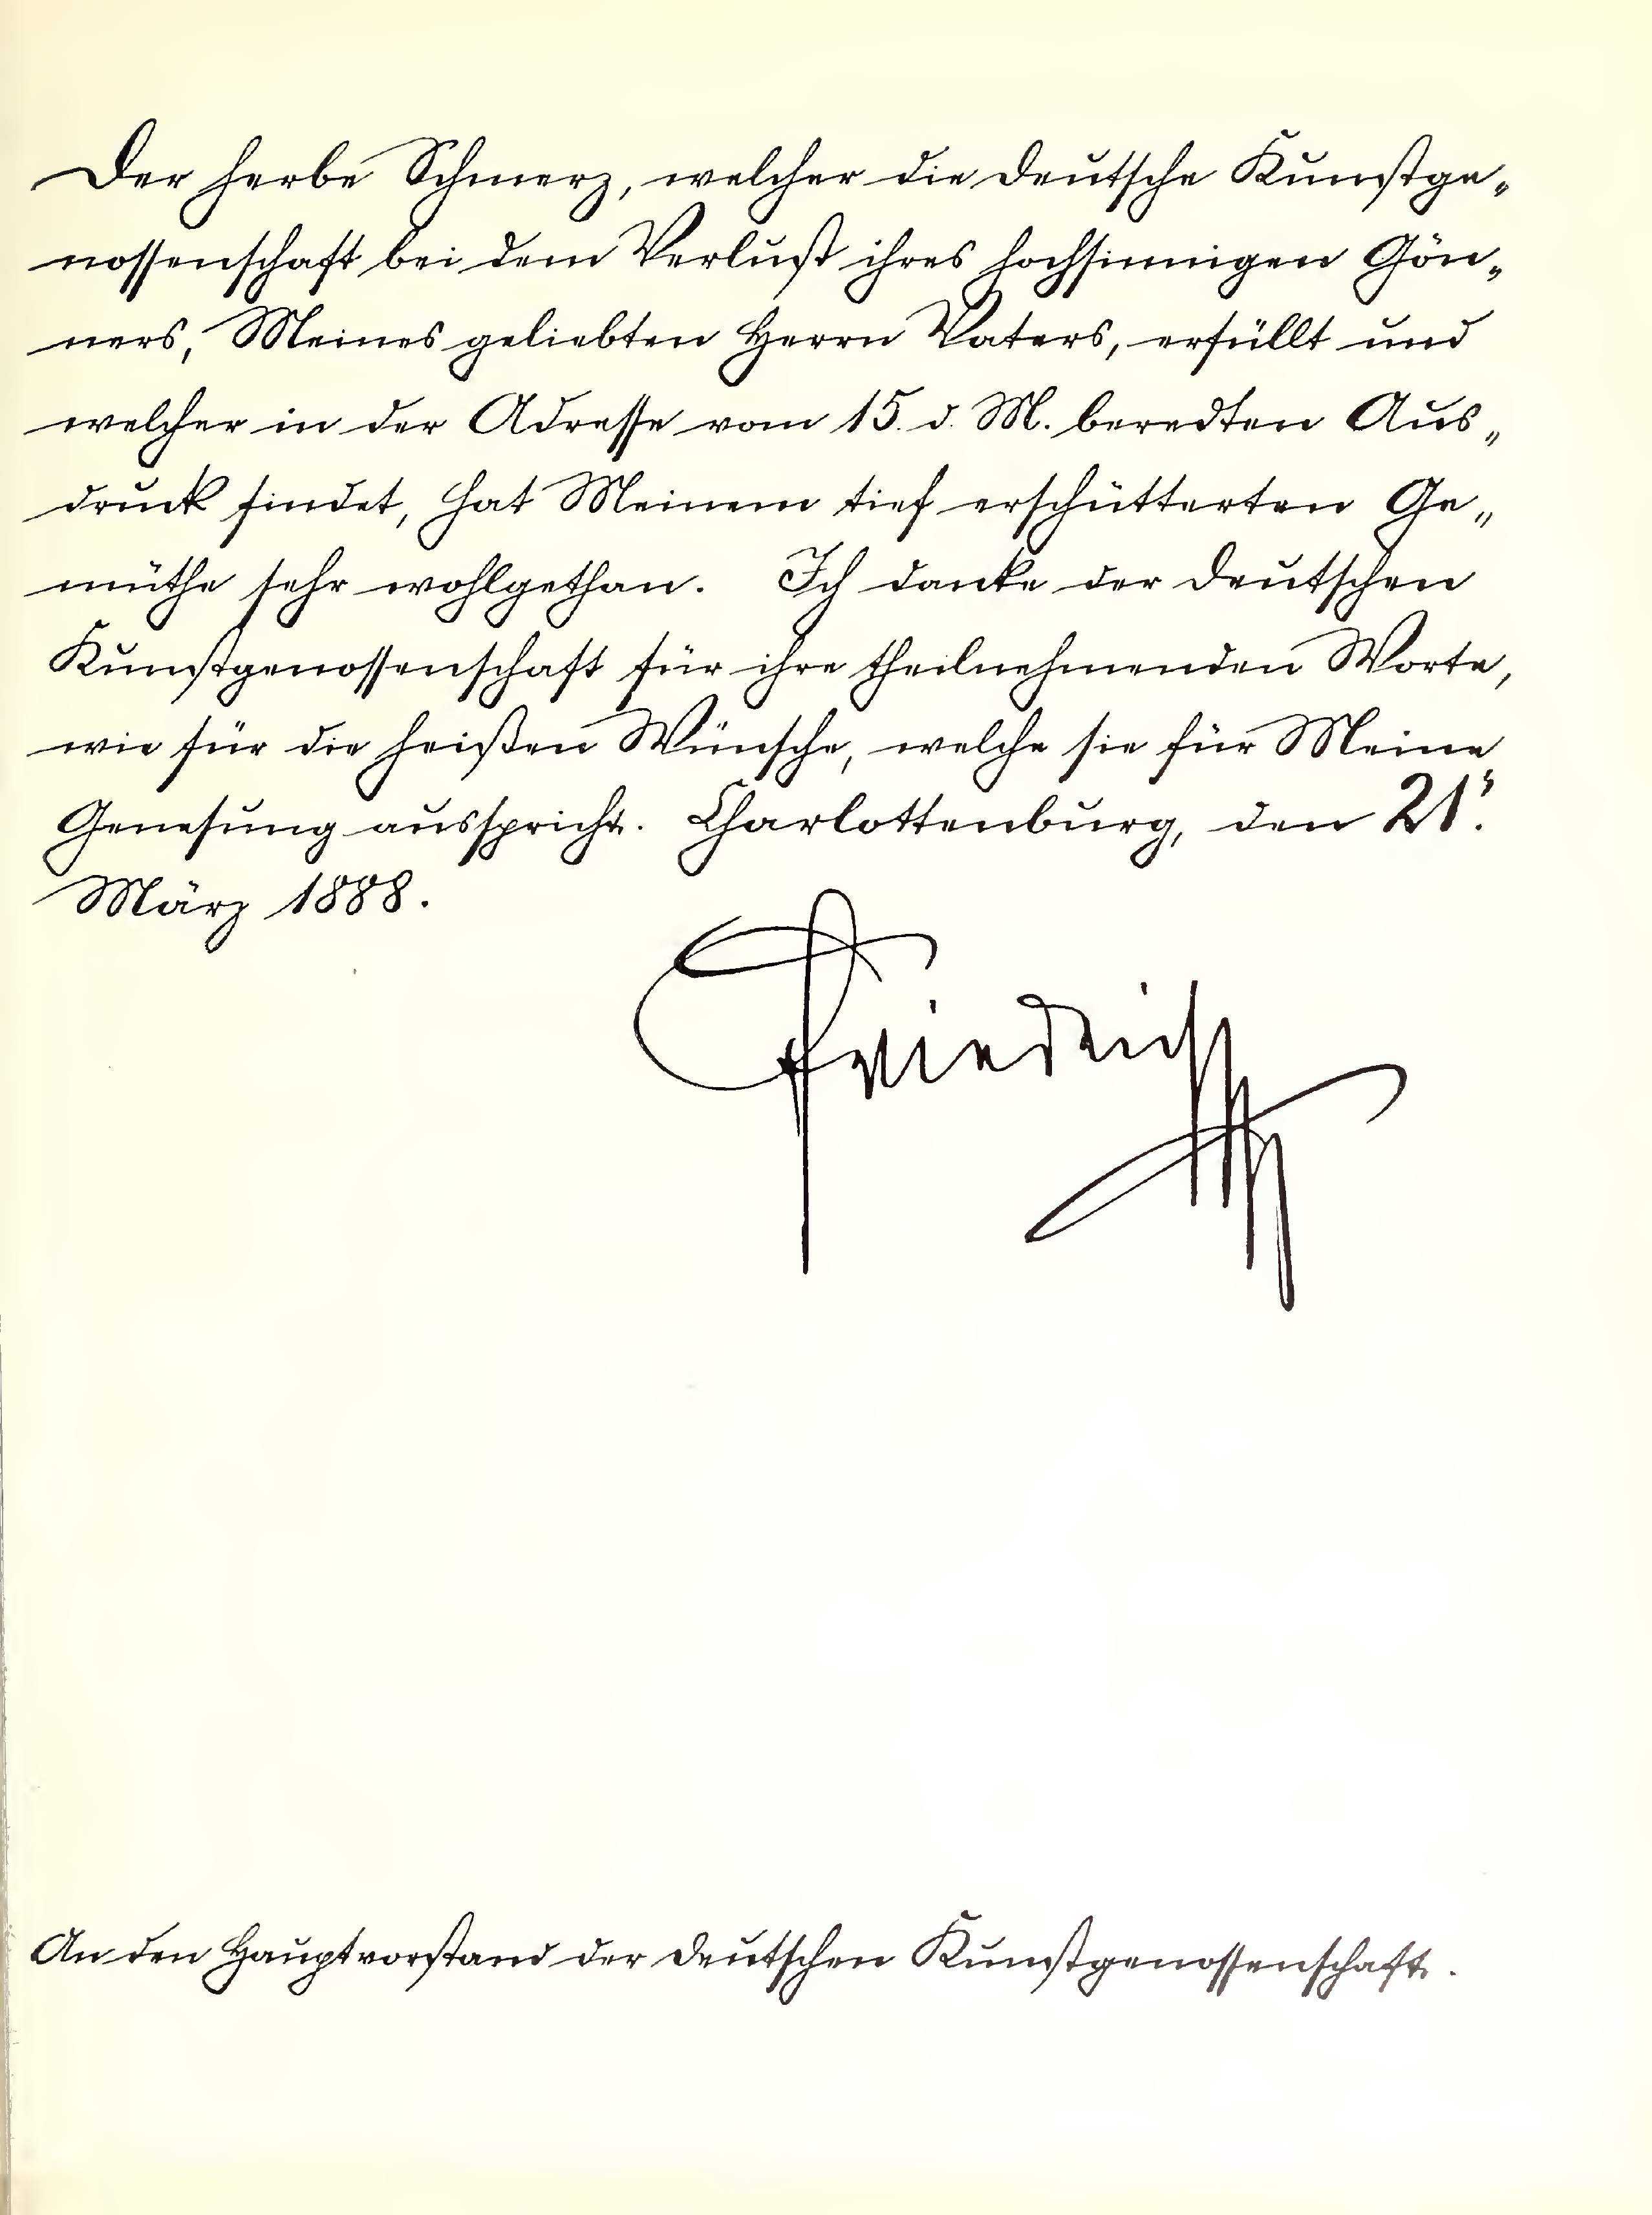 Der herbe Schmerz, welcher die deutsche Kunstge„
nossenschaft bei dem Verlust ihres hochsinnigen Gön„
ners, Meines geliebten Herrn Vaters, erfüllt und
welcher in der Adresse vom 15. d. M. beredten Aus„
druck findet, hat Meinem tief erschütterten Ge„
müthe sehr wohlgethan. Ich danke der deutschen
Kunstgenossenschaft für ihre theilnehmenden Worte,
wie für die heißen Wünsche, welche sie für Meine
Genesung ausspricht. Charlottenburg, den 21.
März 1888.
Friedrich
An den Hauptvorstand der deutschen Kunstgenossenschaft.